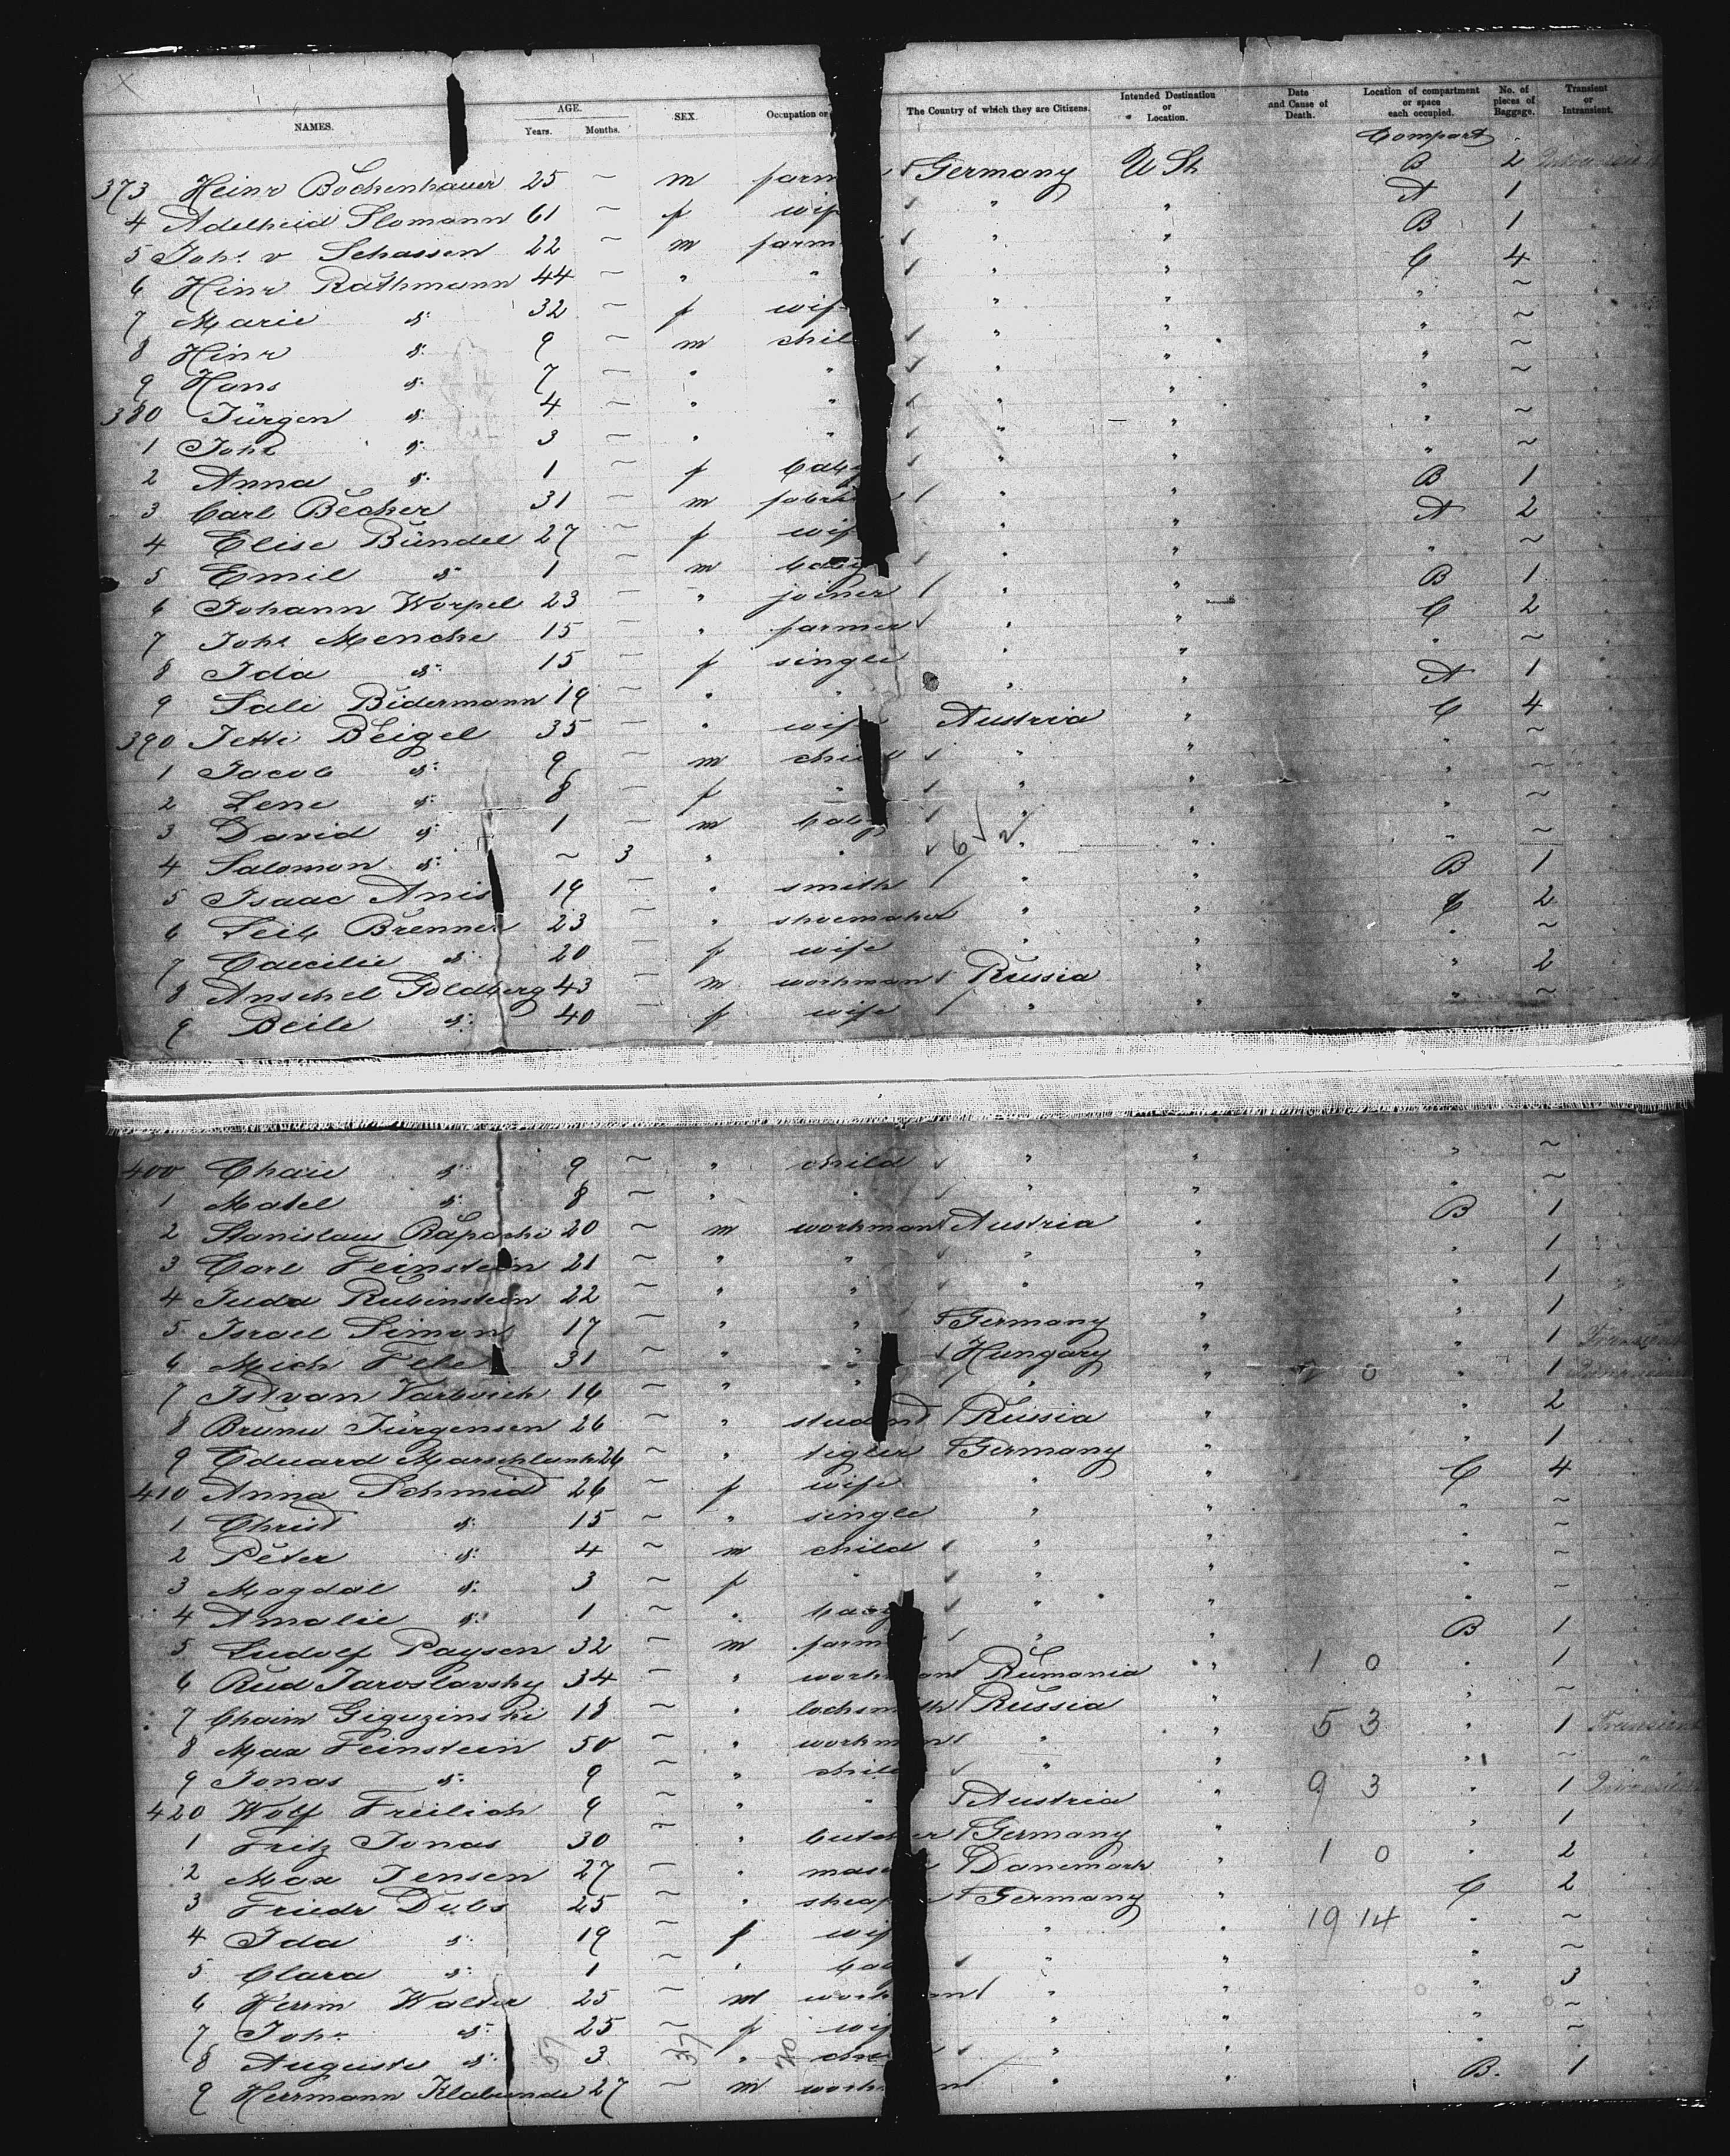 NAMES. AGE. Years. Months. SEX. Occupation or The Country of which they are Citizens. Intended Destination or Location. Date and Cause of Death. Location of compartment or space each occupied. No. of pieces of Baggage. Transient or Intransient.
Compart
373 Heinr Bockenhauer 25 ~ m farm Germany U St B 2
4 Adelheid Slomann 61 ~ f wif " " A 1
5 Joh. v Schassen 22 ~ m farm " " B 1
6 Hinr Rathmann 44 ~ " " " " C 4
7 Marie d: 32 ~ f wif " " " ~
8 Hinr d: 9 ~ m chil " " " ~
9 Hans d: 7 ~ " " " " " ~
380 Jürgen d: 4 ~ " " " " " ~
1 Joh. d: 3 ~ " " " " " ~
2 Anna d: 1 ~ f baby " " " ~
3 Carl Becker 31 ~ m " " B 1
4 Elise Bündel 27 ~ f wif " " A 2
5 Emil d: 1 ~ m baby " " " ~
6 Johann Worpel 23 ~ " joiner " " B 1
7 Joh. Menche 15 ~ " farmer " " C 2
8 Ida d: 15 ~ f single " " " ~
9 Sali Bidermann 19 ~ " " " " A 1
390 Jette Beigel 35 ~ " wife Austria " C 4
1 Jacob d: 9 ~ m child " " " ~
2 Lene d: 8 ~ f " " " " ~
3 David d: 1 ~ m baby " " " ~
4 Salomon d: ~ 3 " " " " " ~
5 Isaac Anis 19 ~ " smith " " B 1
6 Leib Brenner 23 ~ " shoemaker " " C 2
7 Caecilie d: 20 ~ f wife " " " ~
8 Anschel Goldberg 43 ~ m workman Russia " " 2
9 Beile d: 40 ~ f wife " " " ~
400 Chaie d: 9 ~ " child " " " ~
1 Matel d: 8 ~ " " " " " ~
2 Stanislaus Raparski 20 ~ m workman Austria " B 1
3 Carl Feinstein 21 ~ " " " " " 1
4 Juda Rubinstein 22 ~ " " " " " 1
5 Israel Simon 17 ~ " " Germany " " 1
6 Mich Fele 31 ~ " " Hungary " " 1 Transient
7 Istvan Varbosch 16 ~ " " " " 0 " 1
8 Bruno Jürgensen 26 ~ " student Russia " " 2
9 Eduard Marschlank 26 ~ " tigler Germany " " 1
410 Anna Schmid 26 ~ f wife " " C 4
1 Christ d: 15 ~ " single " " " ~
2 Peter d: 4 ~ m child " " " ~
3 Magdal d: 3 ~ f " " " " ~
4 Amalie d: 1 ~ " baby " " " ~
5 Ludolf Paysen 32 ~ m farm " " B 1
6 Rud Jaroslavsky 34 ~ " workman Rumania " 1 0 " 1
7 Chaim Giguzinski 18 ~ " locksmith Russia " " ~
8 Max Feinstein 50 ~ " workman " " 5 3 " 1 Transient
9 Jonas d: 9 ~ " child " " " ~ "
420 Wolf Freilich 9 ~ " " Austria " 9 3 " 1
1 Fritz Jonas 30 ~ " butcher Germany " " 1
2 Max Jensen 27 ~ " Danemark " 1 0 " 2
3 Friedr Dubs 25 ~ " Germany " C 2
4 Ida d: 19 ~ f wif " " 19 14 " ~
5 Clara d: 1 ~ " " " " ~
6 Herrm Walter 25 ~ m workman " " " 3
7 Joh. d: 25 ~ f wif " " " ~
8 Auguste d: 3 ~ " " " " ~
9 Herrmann Klabunde 27 ~ m workman " " B. 1